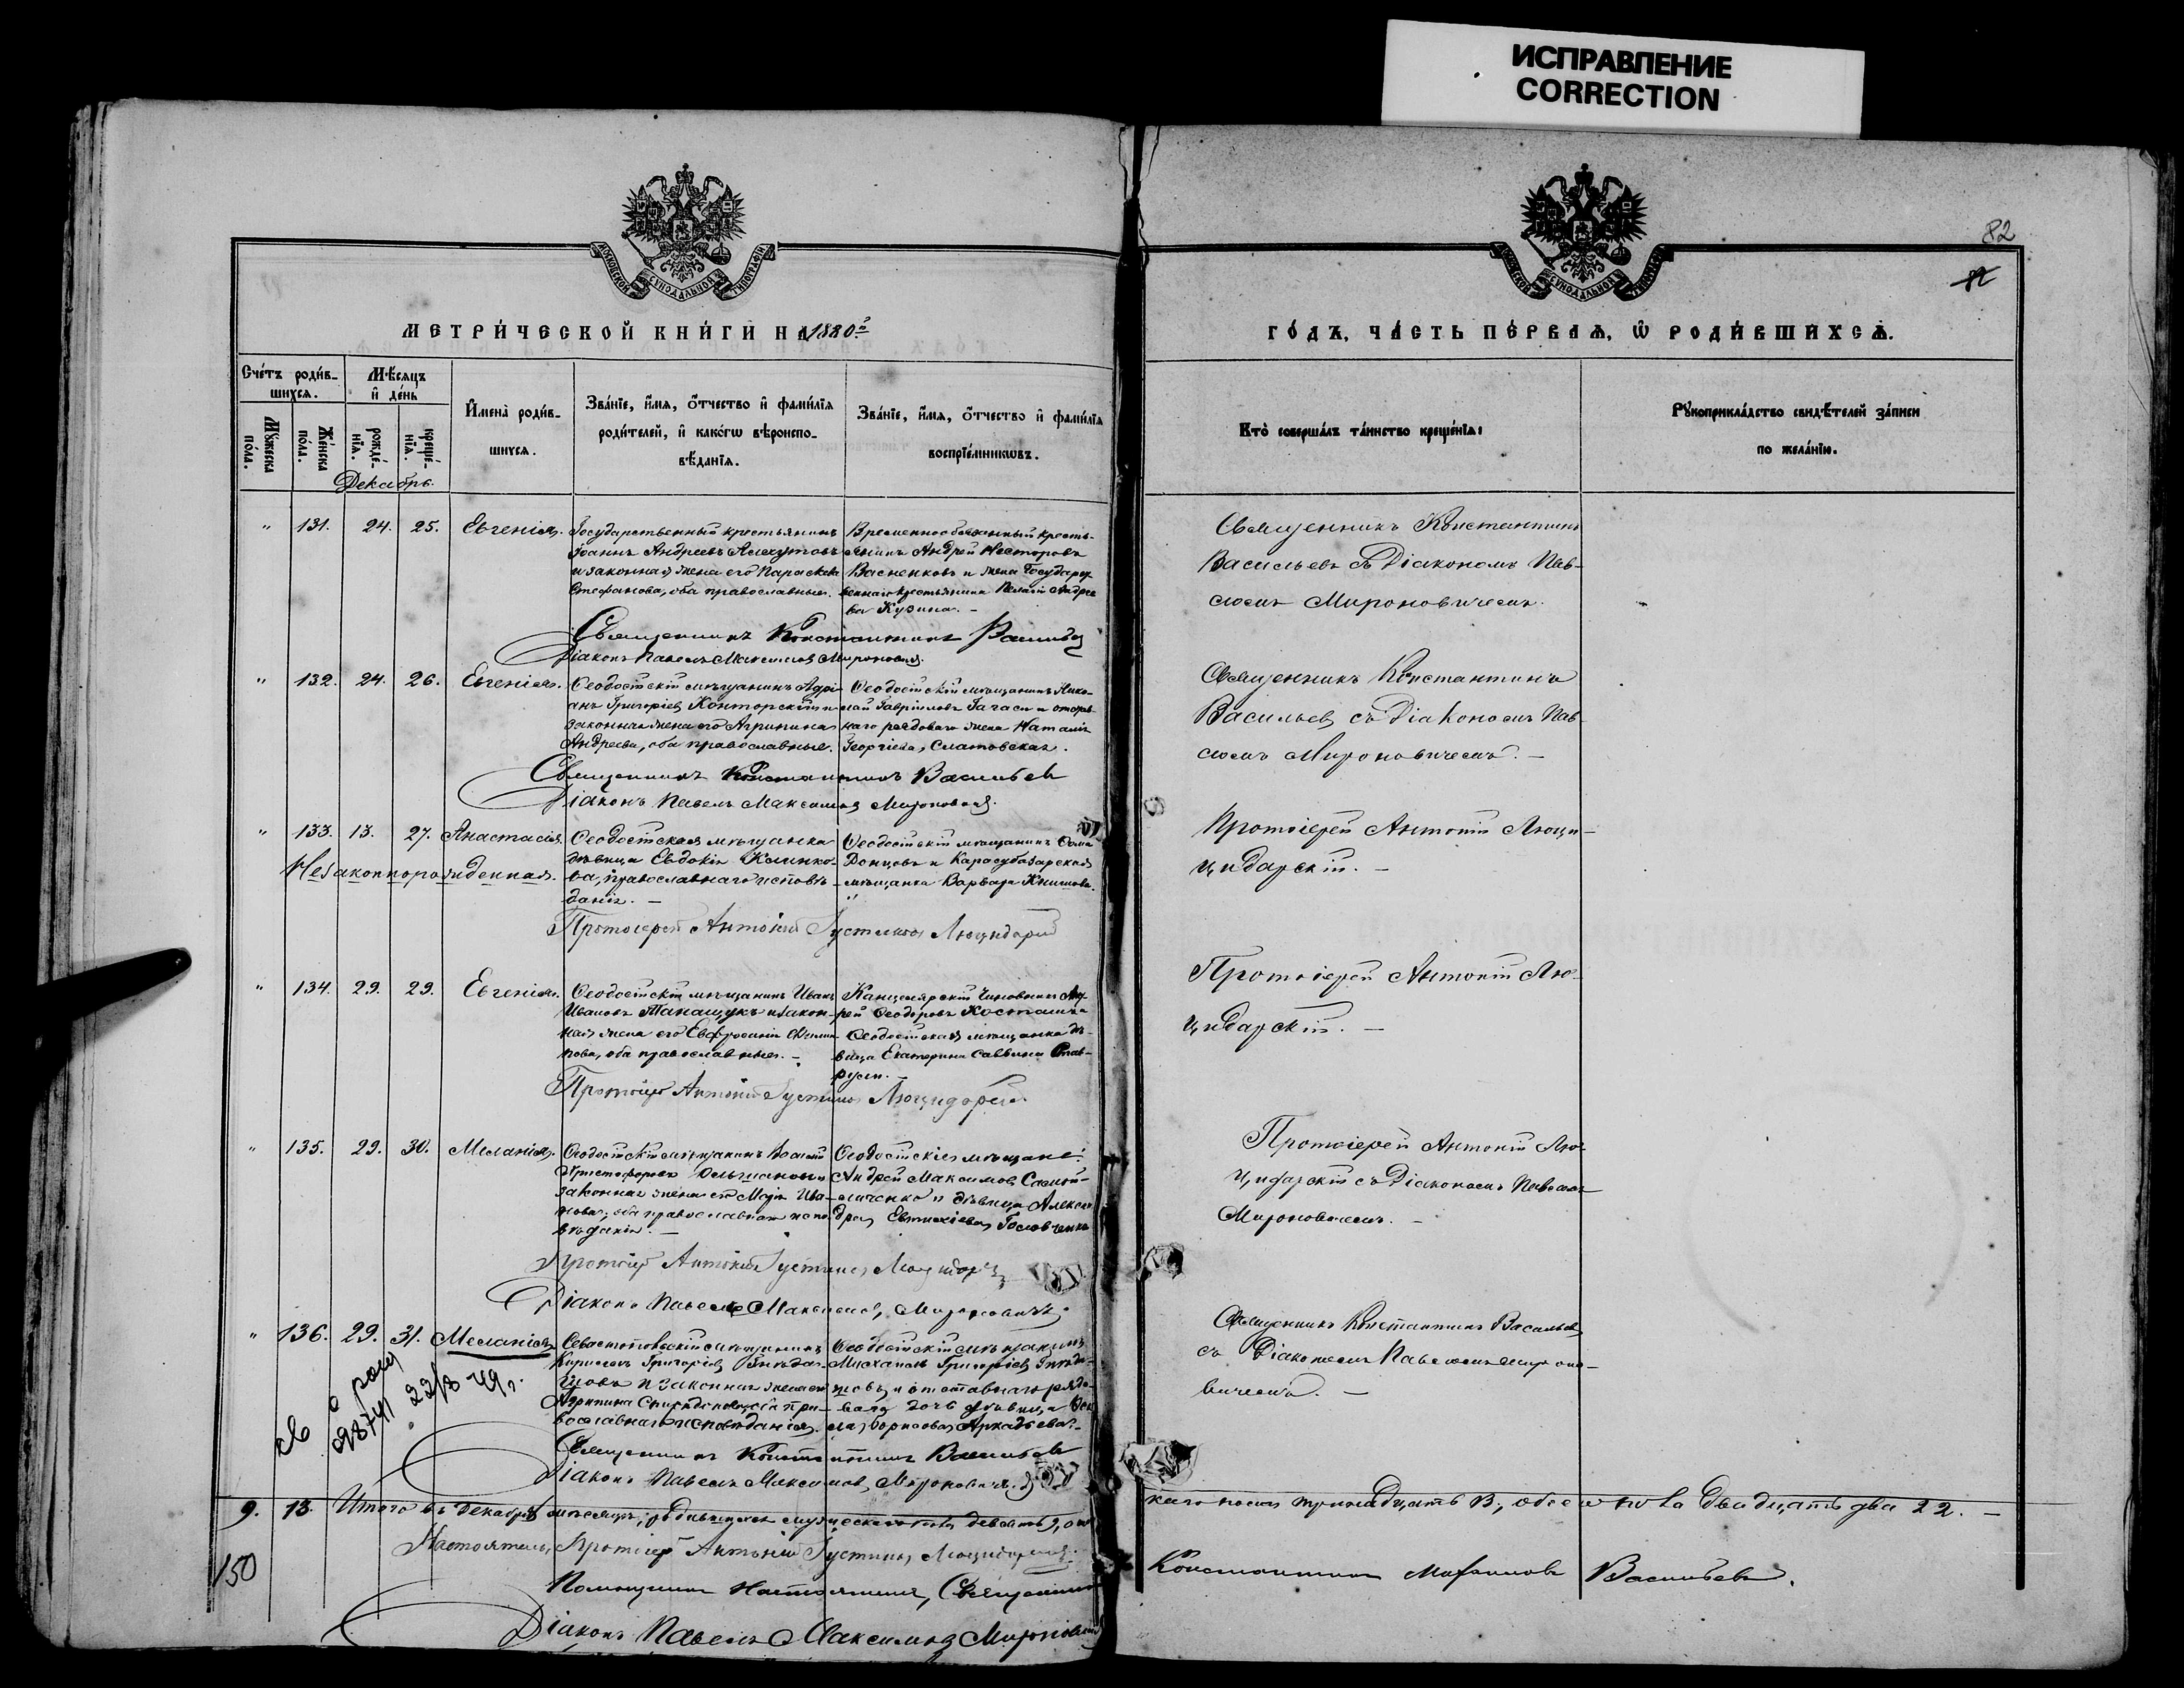 ИСПРАВЛЕНИЕ
CORRECTION
МОСКОВСКОЙ СУНОДАЛЬНОЙ ТИПОГРАФІИ
МОСКОВСКОЙ СУНОДАЛЬНОЙ ТИПОГРАФІИ
82
МЕТРИ́ЧЕСКОЙ КНИ́ГИ НА 1880 г̃
ГО́ДЪ, ЧА́СТЬ ПЕ́РВАѦ, Ѡ҆ РОДИ́ВШИХСѦ.
Сче́тъ роди́в-
шихсѧ.
Мѣ́сѧцъ
и҆ де́нь
Мꙋ́жеска
по́ла.
Же́нска
по́ла.
рожде́-
нїѧ.
креще́-
нїѧ.
И҆мена̀ роди́в-
шихсѧ.
Зва́нїе, и҆́мѧ, ѻ҆́тчество и҆ фами́лїѧ
роди́телей, и҆ како́гѡ вѣроиспо-
вѣ́данїѧ.
Зва́нїе, и҆́мѧ, ѻ҆́тчество и҆ фами́лїѧ
воспрїе́мникѡвъ.
Кто̀ соверша́лъ та́инство креще́нїѧ:
Рꙋкоприкла́дство свидѣ́телей за́писи
по жела́нїю.
Декабрь.
" 131. 24. 25. Евгенія.
Государственный крестьянинъ
Іоаннъ Андреевъ
и законная жена его Параскева
Стефанова, оба православные.
Временнообязанный кресть-
янинъ Андрей Несторовъ
Васненковъ и жена Государст-
веннаго крестьянина Андрее
ва Кузина. —
Священникъ Константинъ
Васильевъ съ Діакономъ Пав-
ломъ Мироновичемъ.
Священникъ Константинъ Васильев
Діаконъ Павелъ Максимов Миронович.
" 132. 24. 26. Евгенія.
Ѳеодосійскій мѣщанинъ Адрі-
анъ Григоріев Конторскій и
законная жена его Агрипина
Андреева, оба православные.
Ѳеодосійскій мѣщанинъ Нико-
лай Гавріиловъ Гагаси и отстав-
наго рядоваго жена Наталія
Георгіева, Слатовская.
Священникъ Константинъ
Васильев съ Діакономъ Пав-
ломъ Мироновичемъ. —
Священникъ Константинъ Васильев
Діаконъ Павелъ Максимов Миронович.
" 133. 13. 27. Анастасія.
Незаконнорожденная.
Ѳеодосійская мѣщанка
дѣвица Евдокія Клинко-
ва, православнаго исповѣ-
данія. —
Ѳеодосійскій мѣщанинъ Ѳома
Донцовъ и Карасубазарская
мѣщанка Варвара Книшова.
Протоіерей Антоній Люци-
цидарскій. —
Протоіерей Антоній Іустинов Люцидарскій
" 134. 29. 29. Евгенія.
Ѳеодосійскій мѣщанинъ Иванъ
Ивановъ Танащукъ и закон-
ная жена его Евфросинія
нова, оба православные. —
Канцелярскій Чиновникъ Анд-
рей Ѳеодоровъ
Ѳеодосійская мѣщанка дѣ-
вица Екатерина Саввина Став-
руси. —
Протоіерей Антоній Лю-
цидарскій. —
Протоіерей Антоній Іустинов Люцидарскій
" 135. 29. 30. Меланія.
Ѳеодосійскій мѣщанинъ
Христофоровъ и
законная жена его Марія Ива-
нова, оба православнаго испо-
вѣданія. —
Ѳеодосійскіе мѣщане:
Андрей Максимов Самой-
личенко и дѣвица Алексан
дра Евтихіева Головченко
Протоіерей Антоній Лю-
цидарскій съ Діакономъ Павломъ
Мироновичемъ. —
Протоіерей Антоній Іустинов Люцидарскій
Діаконъ Павелъ Максимов Мироновичъ.
" 136. 29. 31. Меланія
Севастопольскій мѣщанинъ
Кириллъ Григоріев Гнѣда-
шовъ и законная жена его
Агрипина Спиридоновна, оба пра-
вославнаго исповѣданія.
Ѳеодосійскій мѣщанинъ
Михаилъ Григоріев Гнѣда-
шовъ и отставнаго рядо-
ваго дочь дѣвица
Борисова Аркадьева. —
Священникъ Константинъ Васильев
съ Діакономъ Павломъ Мироно-
вичемъ. —
св о рожд
22/8 49г.
Священникъ Константинъ Васильев
Діаконъ Павелъ Максимов Мироновичъ.
9. 13. Итого въ Декабрѣ мѣсяцѣ родившихся мужескаго пола девять 9, жен
скаго пола тринадцать 13, обоего пола двадцать два 22. —
150
Настоятель, Протоіерей Антоній Іустинов Люцидарскій.
Помощникъ Настоятеля, Священникъ
Константинъ Васильевъ.
Діаконъ Павелъ Максимов Миронович